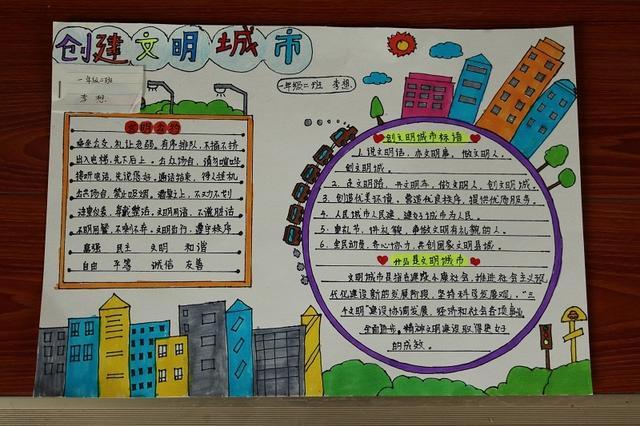 创建文明城市
一年级二班
李想
一年级二班 李想
文明公约
乘坐公交,礼让老弱,有序排队,不插不挤
出入电梯,先下后上。公众场合,请勿喧哗
接听电话,先说您好,通话结束,待人挂机
公共场合,禁止吸烟。
不明网警,不剩不弃,文明出行,遵守秩序
富强 民主 文明 和谐
自由 平等 诚信 友善
创文明城市标语
1.说文明话,办文明事,做文明人,
创文明城。
2.走文明路,开文明车,做文明人,创文明城。
3.创造优美环境,营造优良秩序,提供优质服务。
4.人民城市人民建,建好城市为人民。
5.重礼节,讲礼貌,争做文明有礼貌的人。
6.全民动员,齐心协力,共创国家文明县城。
什么是文明城市
文明城市是指在建成小康社会,推进社会主义现
代化建设新的发展阶段,坚持科学发展观,"三
个文明"建设协调发展,经济和社会各项事业
全面进步,精神文明建设取得更好
的成效。